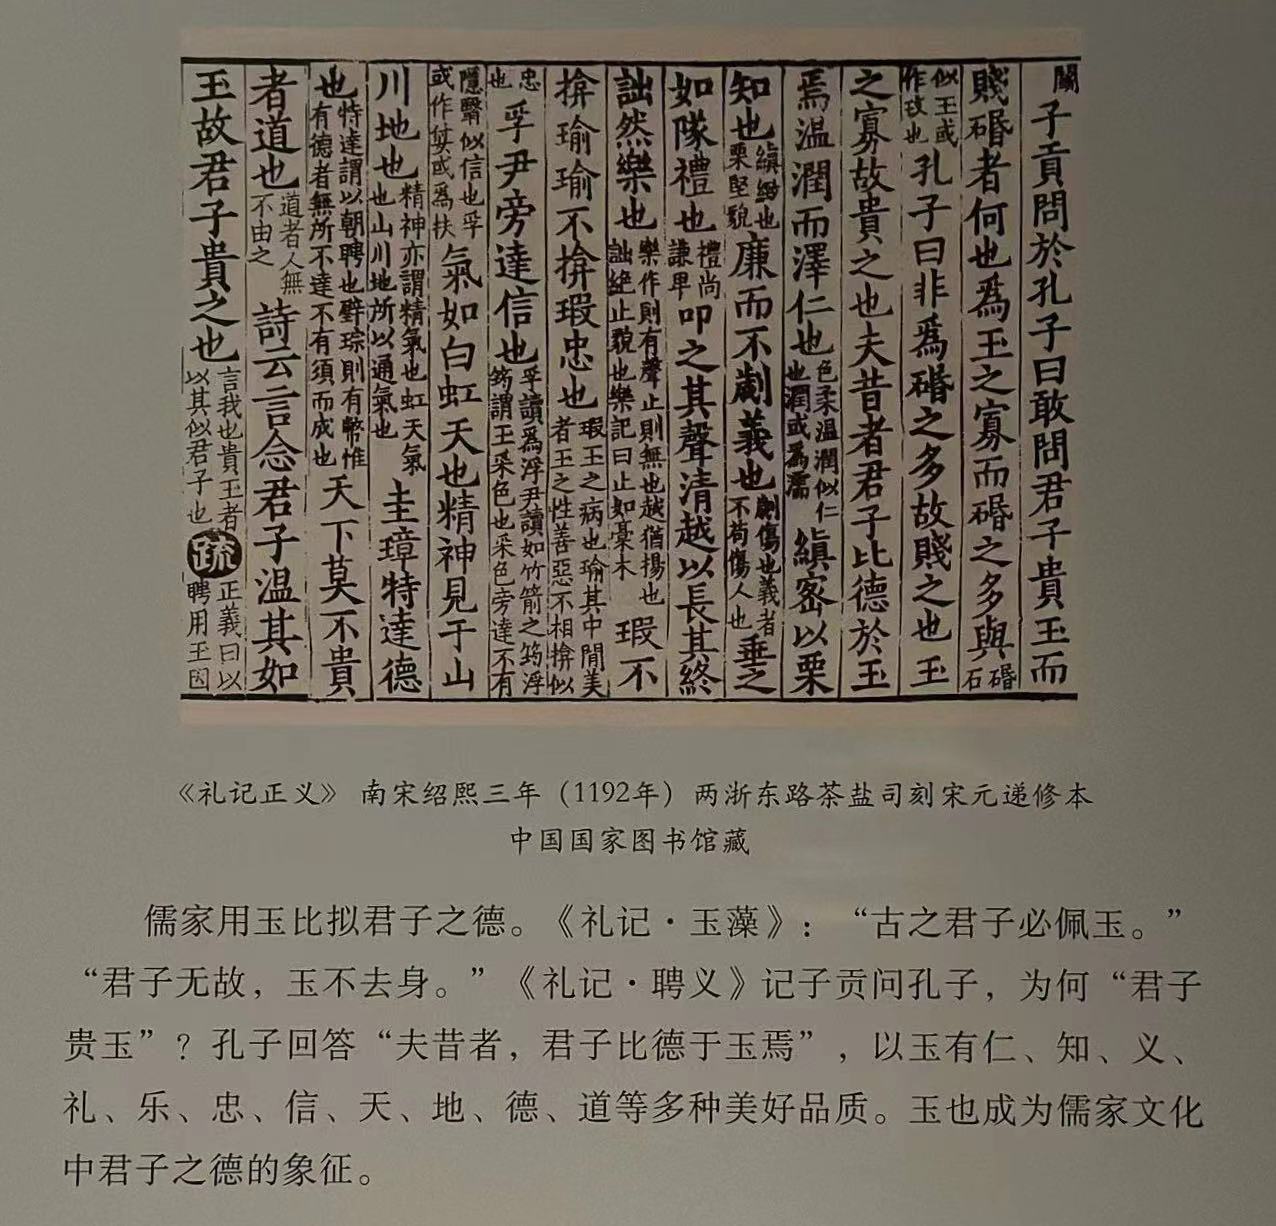 子貢問於孔子曰敢問君子貴玉而
賤碈者何也爲玉之寡而碈之多與碈石
似玉或作玟也孔子曰非爲碈之多故賤之也玉
之寡故貴之也夫昔者君子比德於玉
焉温潤而澤仁也色柔温潤似仁也潤或爲濡縝宻以栗
知也縝緻也栗堅貌廉而不劌義也劌傷也義者不苟傷人也垂之
如隊禮也禮尚謙卑叩之其聲清越以長其終
詘然樂也樂作則有聲止則無也越猶揚也詘絶止貌也樂記曰止如槀木瑕不
揜瑜瑜不揜瑕忠也瑕玉之病也瑜其中間美者玉之性善惡不相揜似
忠也孚尹旁達信也孚讀爲浮尹讀如竹箭之筠浮筠謂玉采色也采色旁達不有
隱翳似信也孚或作姇或爲扶氣如白虹天也精神見于山
川地也精神亦謂精氣也虹天氣也山川地所以通氣也圭璋特達德
也特達謂以朝聘也璧琮則有幣惟有德者無所不達不有須而成也天下莫不貴
者道也道者人無不由之詩云言念君子温其如
玉故君子貴之也言我也貴玉者以其似君子也疏正義曰以聘用玉因
《礼记正义》 南宋绍熙三年（1192年）两浙东路茶盐司刻宋元递修本
中国国家图书馆藏
儒家用玉比拟君子之德。《礼记·玉藻》：“古之君子必佩玉。”
“君子无故，玉不去身。”《礼记·聘义》记子贡问孔子，为何“君子
贵玉”？孔子回答“夫昔者，君子比德于玉焉”，以玉有仁、知、义、
礼、乐、忠、信、天、地、德、道等多种美好品质。玉也成为儒家文化
中君子之德的象征。